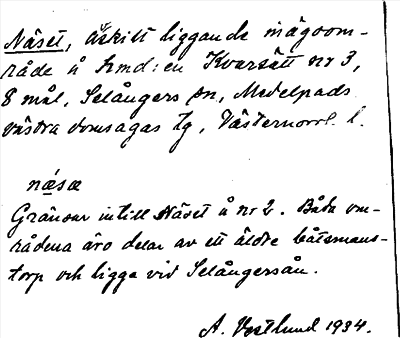 Näset, åtskilt liggande inägoom-
råde å hmd: en Kvarsätt nr 3,
8 mål, Selångers sn, Medelpads
västra domsagas tg, Västernorrl. l.
næsæ
Gränsar intill Näset å nr 2. Båda om-
rådena äro delar av ett äldre båtsmans-
torp och ligga vid Selångersån.
A. Vestlund 1934.